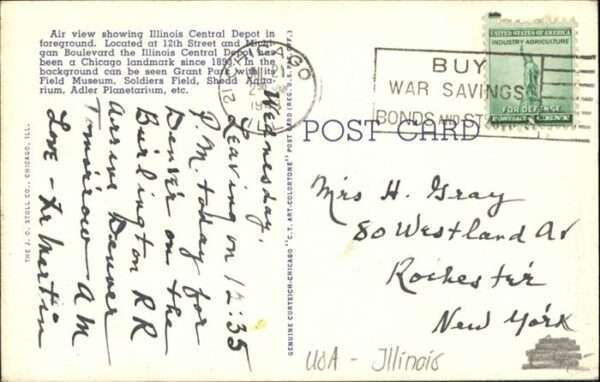 Air view showing Illinois Central Depot in
foreground. Located at 12th Street and Michi-
gan Boulevard the Illinois Central Depot has
been a Chicago landmark since 1893. In the
background can be seen Grant Park with its
Field Museum, Soldiers Field, Shedd Aqua-
rium, Adler Planetarium, etc.
CHICAGO
BUY
WAR SAVINGS
BONDS AND
UNITED STATES OF AMERICA
INDUSTRY AGRICULTURE
FOR DEFENSE
POST CARD
Wednesday,
Leaving on 12:35
P.M. today for
Denver on the
Burlington RR
arrive Denver
Tomorrow AM
Love-
Mrs H. Gray
80 Westland Av
Rochester
New York
THE J. O. STOLL CO., CHICAGO, ILL.
GENUINE CURTEICH-CHICAGO "C.T. ART-COLORTONE" POST CARD (REG. U.S. PAT. OFF.)
USA - Illinois